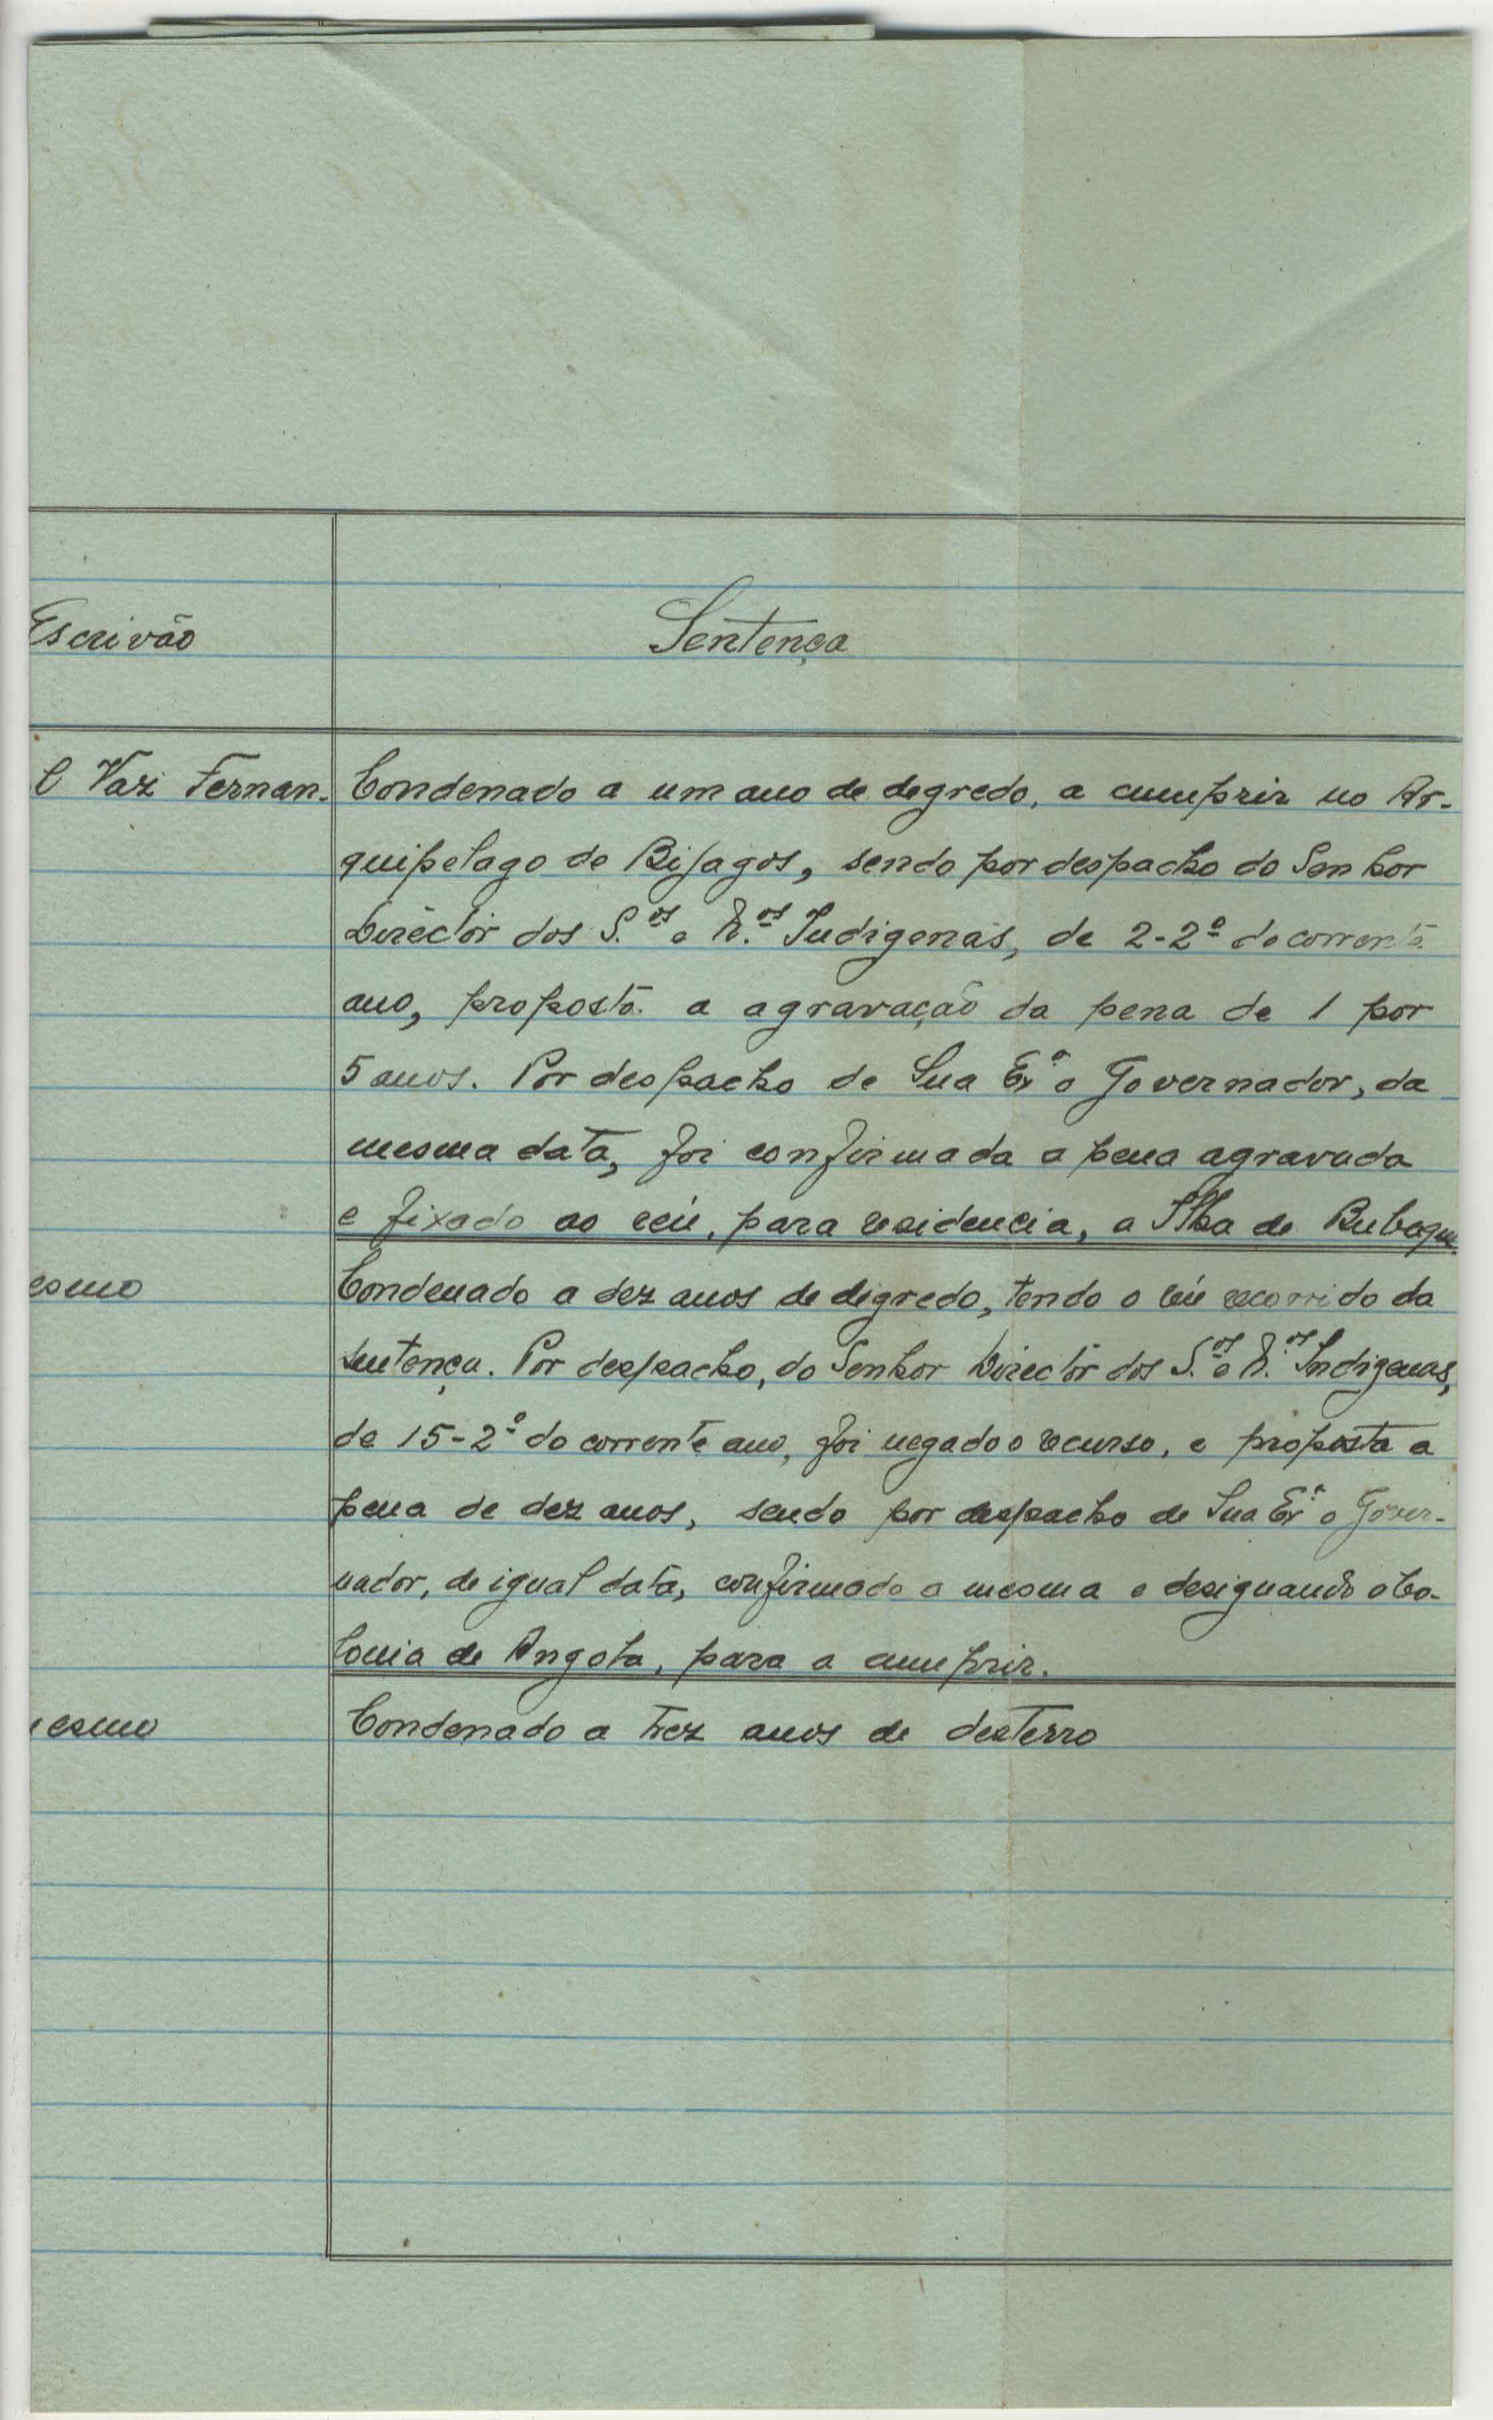 Escrivão
Sentença
l Vaz Fernan-
Condenado a um ano de degredo, a cumprir no Ar-
quipelago de Bijagos, sendo por despacho do Senhor
Diréctor dos S.os e N.os Indigenas, de 2-2º do corrente
ano, proposta a agravação da pena de 1 por
5 anos. Por despacho de Sua Exª o Governador, da
mesma data, foi confirmada a pena agravada
e fixado ao réu, para residencia, a Ilha de Bubaque.
esmo
Condenado a dez anos de degredo, tendo o réu recorrido da
sentença. Por despacho, do Senhor Diréctor dos S.os e N.os Indigenas,
de 15-2º do corrente ano, foi negado o recurso, e proposta a
pena de dez anos, sendo por despacho de Sua Exª o Gover-
nador, de igual data, confirmado a mesma e designando a Co-
lonia de Angola, para a cumprir.
esmo
Condenado a trez anos de desterro